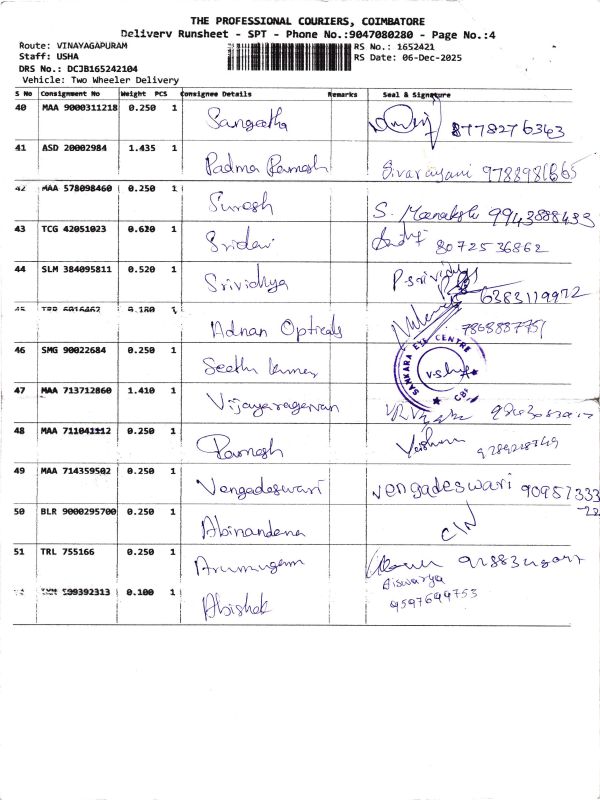 THE PROFESSIONAL COURIERS, COIMBATORE
Delivery Runsheet - SPT - Phone No.:9047080280 - Page No.:4
Route: VINAYAGAPURAM RS No.: 1652421
Staff: USHA RS Date: 06-Dec-2025
DRS No.: DCJB165242104
Vehicle: Two Wheeler Delivery
S No Consignment No Weight PCS Consignee Details Remarks Seal & Signature
40 MAA 9000311218 0.250 1 Sangeetha 8778276343
41 ASD 20002984 1.435 1 Padma Ramesh Sivarayani
42 MAA 578098460 0.250 1 Suresh S. Meenakshi 9943888433
43 TCG 42051023 0.620 1 Sridevi 8072536862
44 SLM 384095811 0.520 1 Srividhya P. Srividhya 6383119972
45 0.180 1 Adnan Opticals
46 SMG 90022684 0.250 1 Seethu Kumar SANKARA EYE CENTRE CBE
47 MAA 713712860 1.410 1 Vijayaragavan
48 MAA 711041112 0.250 1 Ramesh
49 MAA 714359502 0.250 1 Vengadeswari vengadeswari 909517333
-22
50 BLR 9000295700 0.250 1 Abinandena CIN
51 TRL 755166 0.250 1 Arumugam
Aiswarya
599392313 0.100 1 Abishek 9597699753